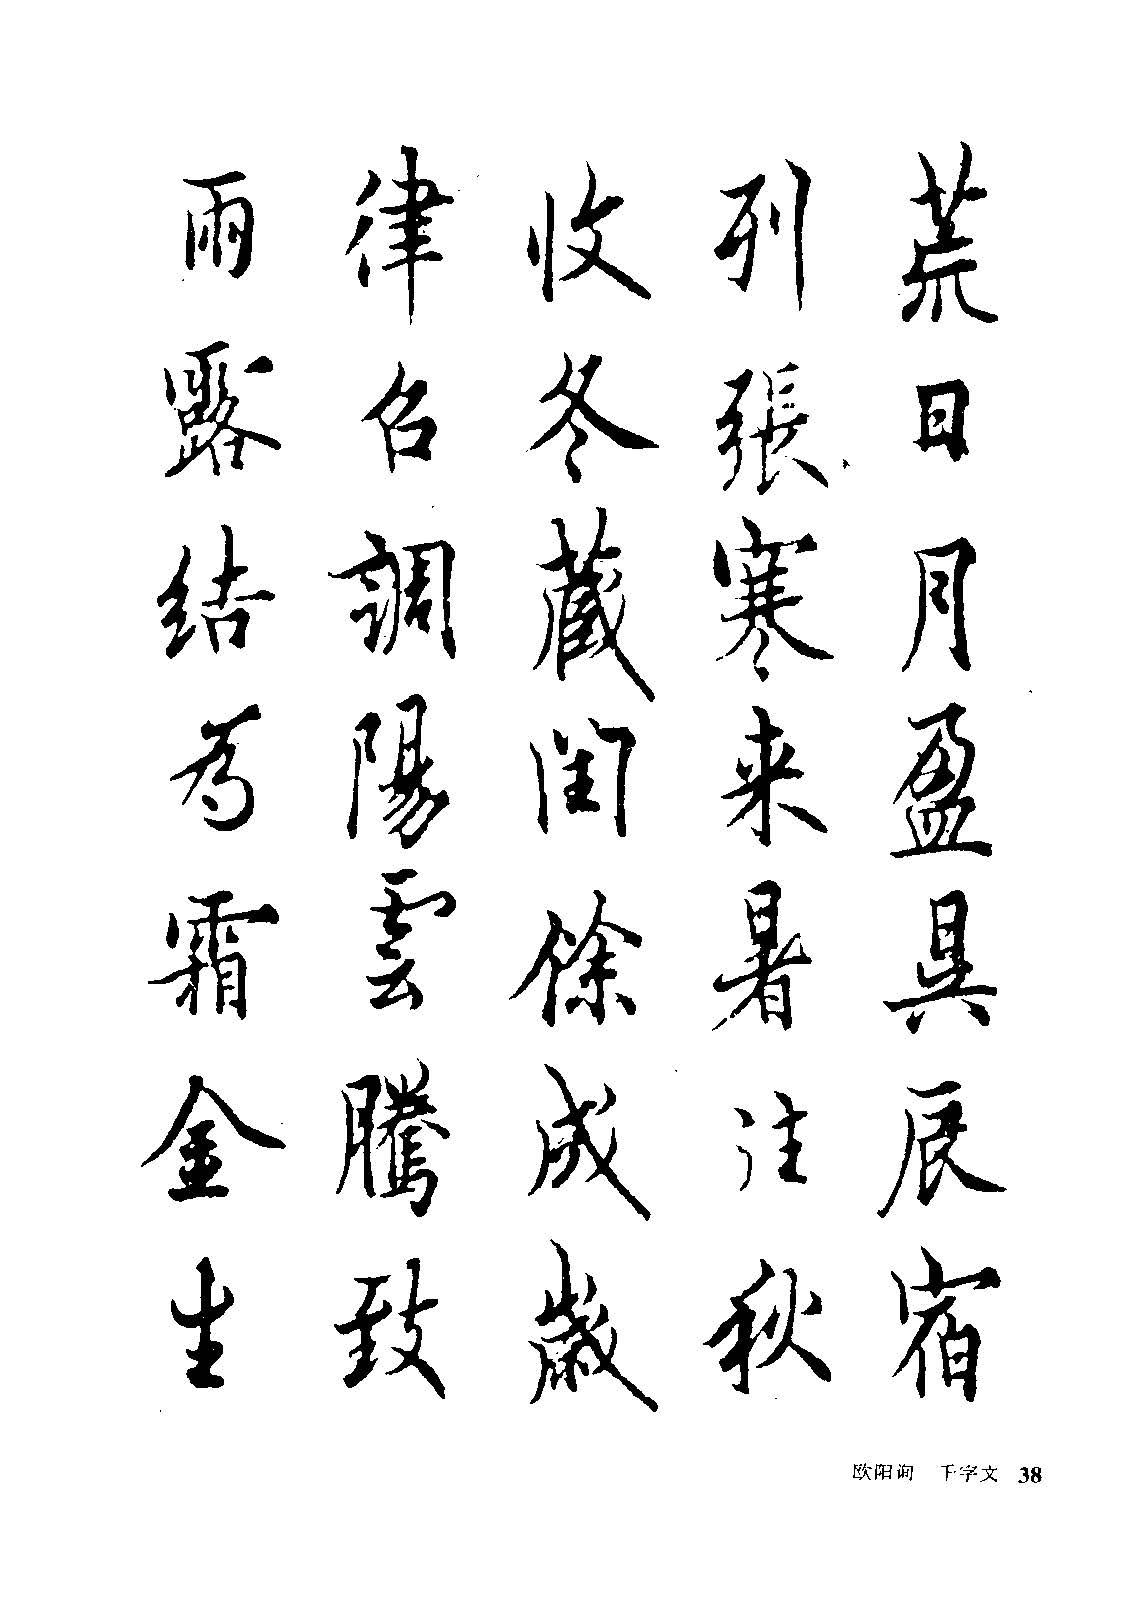 荒日月盈昃辰宿
列張寒来暑往秋
收冬藏闰餘成歲
律召調陽雲騰致
雨露结為霜金生
欧阳询 千字文 38